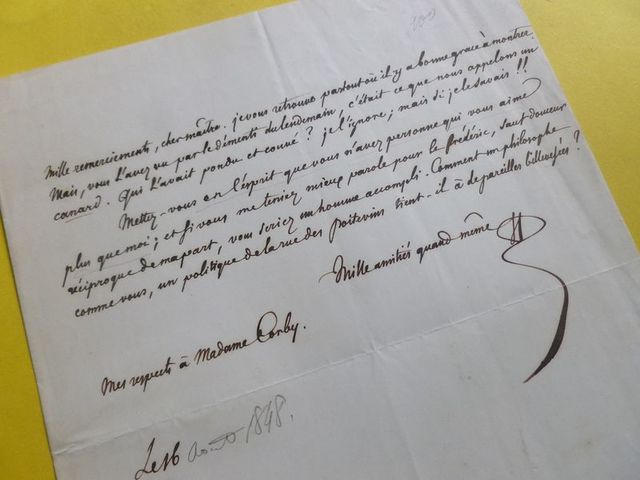 Mille remerciements, cher maître. je vous retrouve partout où il y a bonne grace à montrer.
Mais, vous l'avez vu par le démenti du lendemain, c'était ce que nous appelons un
canard. Qui l'avait pondu et couvé? je l'ignore; mais si je le savais!!
Mettez-vous en l'esprit que vous n'avez personne qui vous aime
plus que moi; et si vous me teniez mieux parole pour le frédéric, sauf douceur
réciproque de ma part, vous seriez un homme accompli. Comment un philosophe
comme vous, un politique de la rue des poitevins tient-il à de pareilles billevesées?
Mille amitiés quand même
Mes respects à Madame Corby.
Le 16 Août 1848.